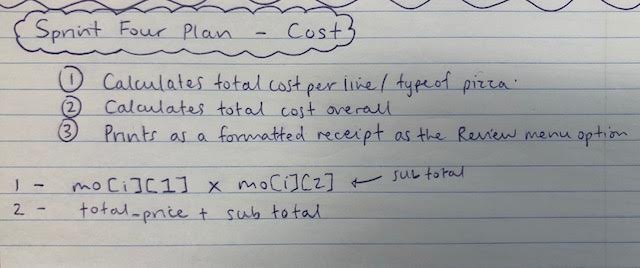 Sprint Four Plan - Cost
① Calculates total cost per line / type of pizza.
② Calculates total cost overall
③ Prints as a formatted receipt as the Review menu option
1 - mo[i][1] x mo[i][2] ← sub total
2 - total_price + sub total